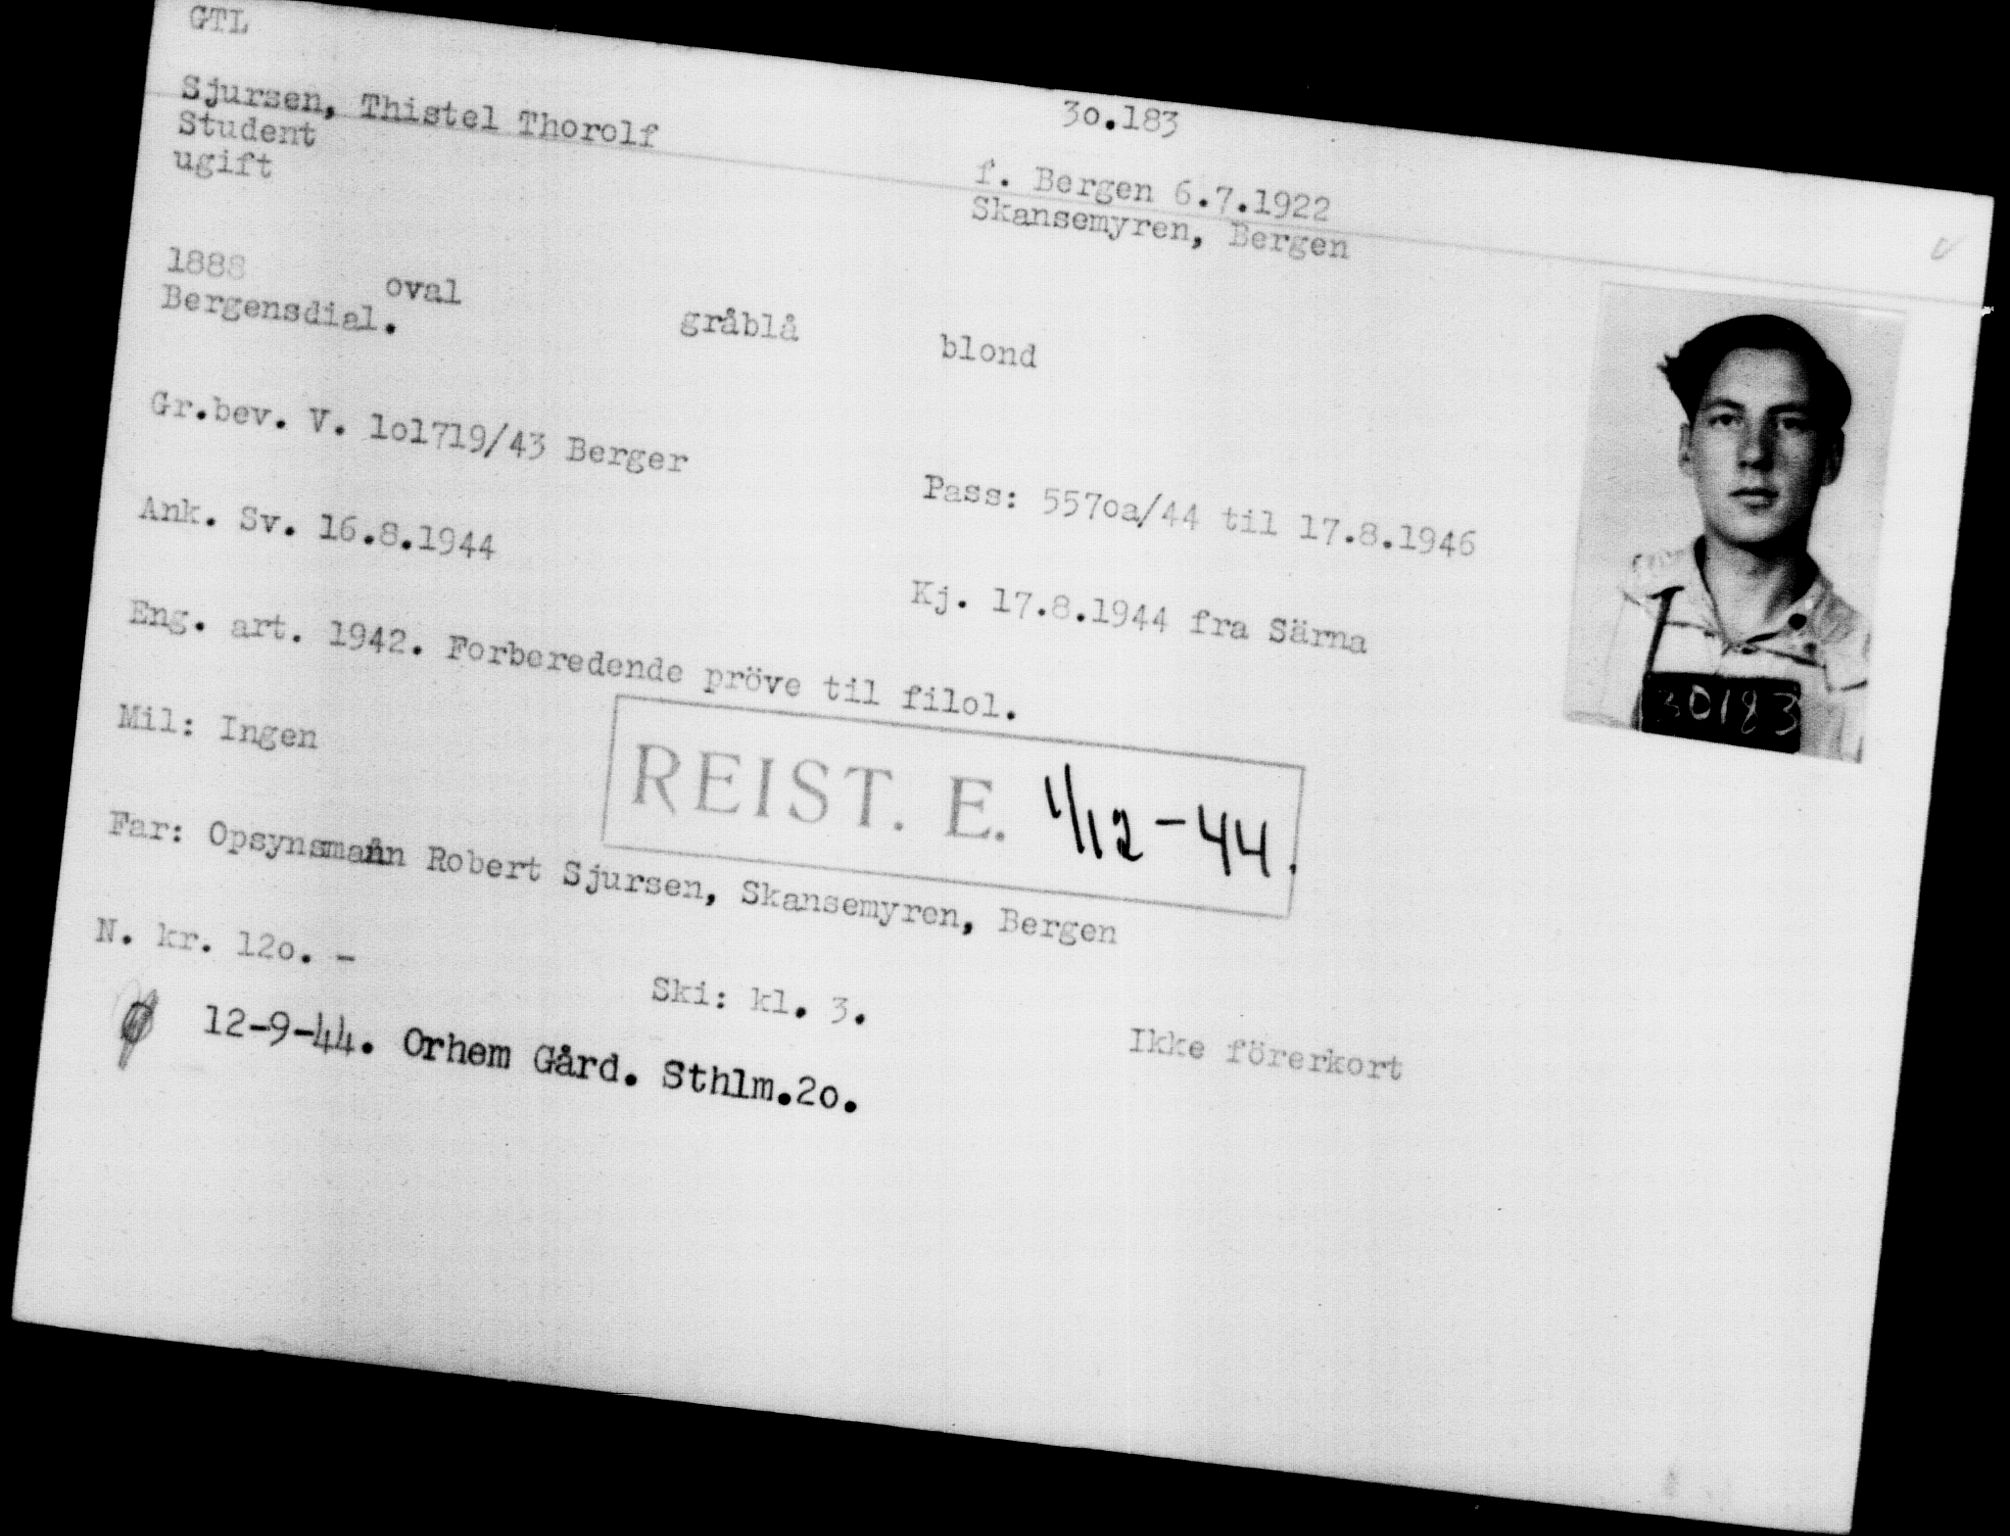 GTL
Sjursen, Thistel Thorolf
30.183
Student
f. Bergen 6.7.1922
ugift
Skansemyren, Bergen
1888 oval gråblå blond
Bergensdial.
Gr.bev. V. lol719/43 Berger
Pass: 5570a/44 til 17.8.1946
Ank. Sv. 16.8.1944
Kj. 17.8.1944 fra Särna
Eng. art. 1942. Forberedende pröve til filol.
Mil: Ingen
REIST. E. 1/12-44.
Far: Opsynsmann Robert Sjursen, Skansemyren, Bergen
N. kr. 12o. -
Ski: kl. 3.
Ikke förerkort
12-9-44. Orhem Gård. Sthlm.2o.
30183